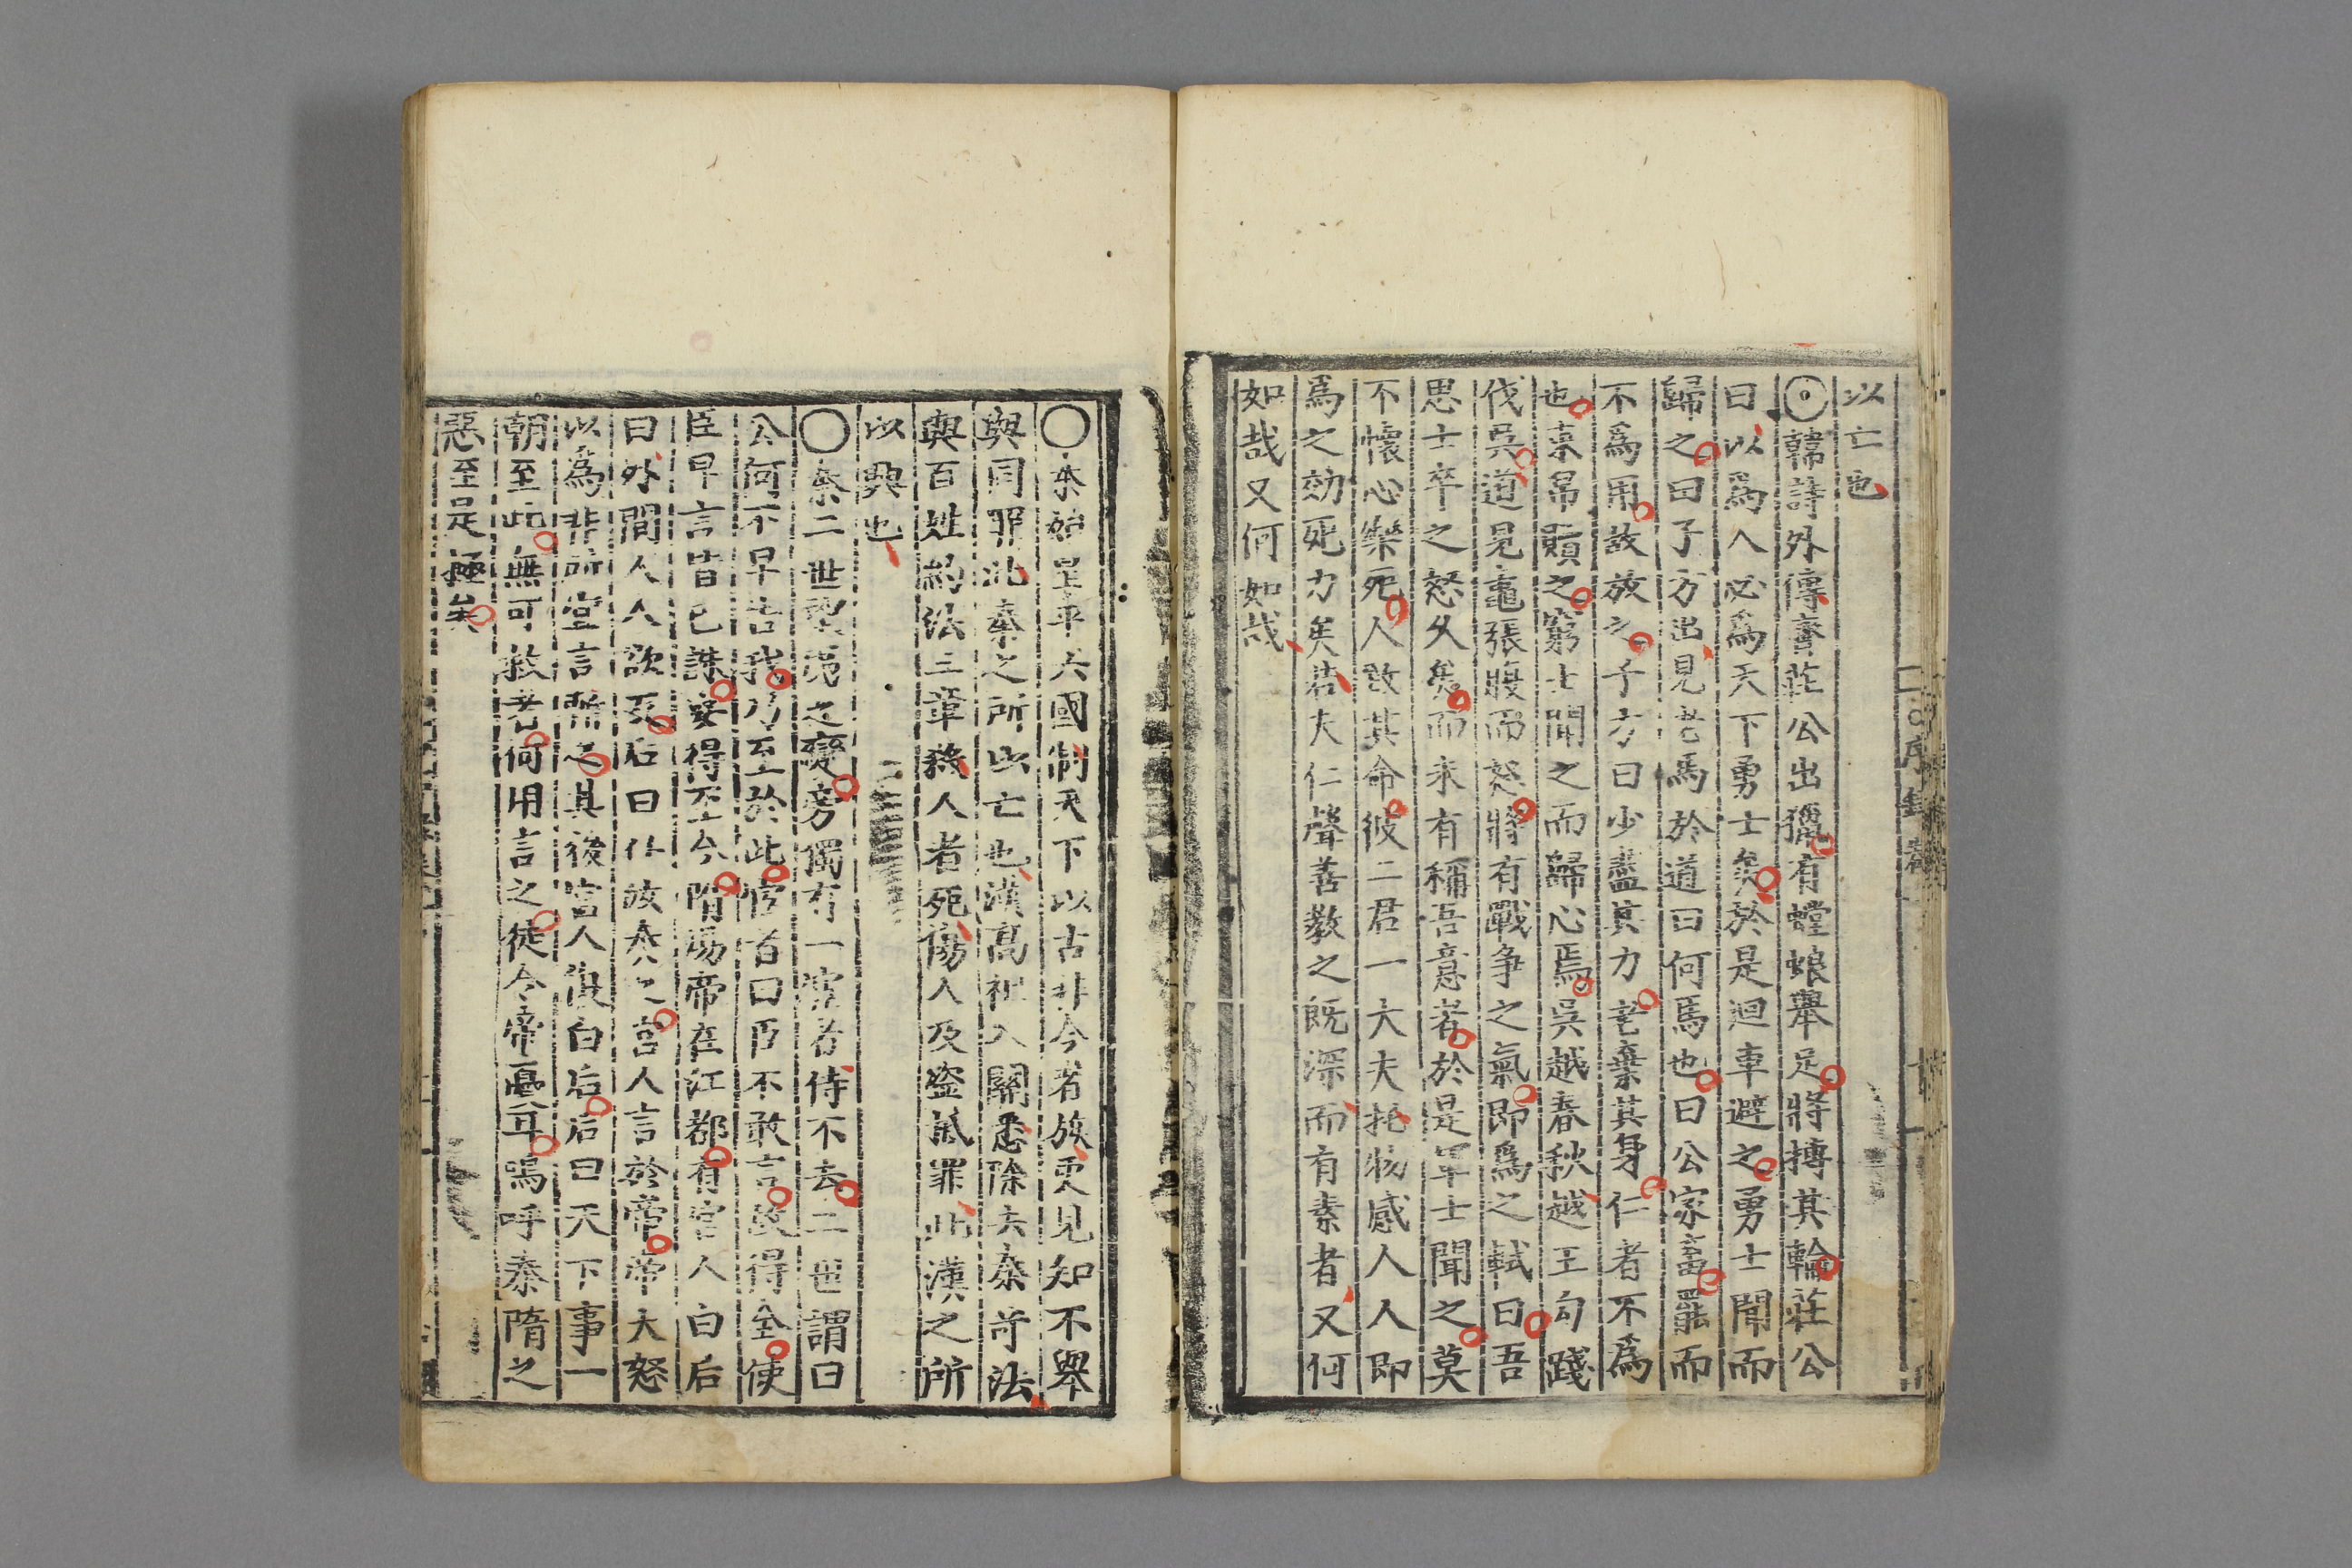 以亡也
韓詩外傳齊莊公出獵有螳蜋舉足將搏其輪莊公
曰以爲人必爲天下勇士矣於是迴車避之勇士聞而
歸之田子方出見老馬於道曰何馬也曰公家畜罷而
不爲用故放之子方曰少盡其力老棄其身仁者不爲
也束帛贖之窮士聞之而歸心焉吳越春秋越王句踐
伐吳道見鼃張腹而怒將有戰爭之氣即爲之軾曰吾
思士卒之怒久矣而未有稱吾意者於是軍士聞之莫
不懷心樂死人致其命彼二君一大夫托物感人人即
爲之効死力矣若夫仁聲善教之既深而有素者又何
如哉又何如哉
○秦始皇平六國制天下以古非今者族吏見知不舉
與同罪此秦之所以亡也漢高祖入關悉除去秦苛法
與百姓約法三章殺人者死傷人及盜抵罪此漢之所
以興也
○秦二世望夷之變旁獨有一宦者侍不去二世謂曰
公何不早告我乃至於此宦者曰臣不敢言故得全使
臣早言皆已誅安得至今隋煬帝在江都有宮人白后
曰外間人人欲反后曰任汝奏之宮人言於帝帝大怒
以爲非所宜言斬之其後宮人復白后后曰天下事一
朝至此無可救者何用言之徒令帝憂耳嗚呼秦隋之
惡至是極矣